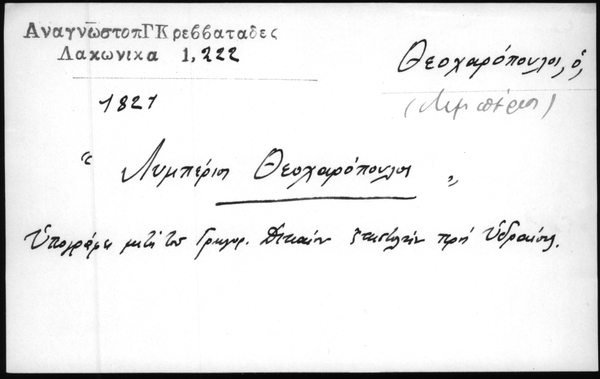 ΑναγνωστοπΓΚρεββαταδες
Λακωνικα 1,222
Θεοχαρόπουλος, ὁ,
(Λυμπέριος)
1821
“ Λυμπέριος Θεοχαρόπουλος „
Ὑπογράφει μετὰ τοῦ Γρηγορ. Δικαίου ἐπιστολὴν πρὸς Ὑδραίους.